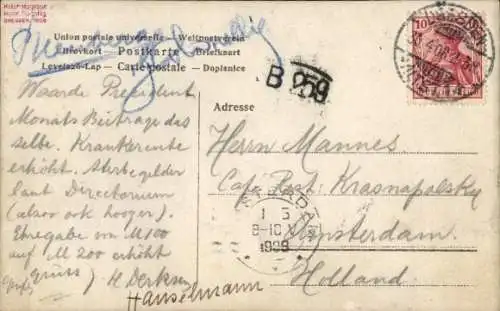 Union postale universelle — Weltpostverein
Dirovkort — Postkarte — Briefkaart
Levelező-Lap — Carte postale — Dopisnice
B 259
10
Adresse
Waarde President
Monats Beiträge das
selbe. Krankenrente
erhöht. Sterbegelder
laut Directorium
(alsoo ook hooger).
Ehregabe von M 100
auf M 200 erhöht
Gruss H. Derksen
Hanselmann
Herrn Mannes
Café Rest. Krasnapolsky
Amsterdam
Holland
AMSTERDAM
1 5
8-10 V